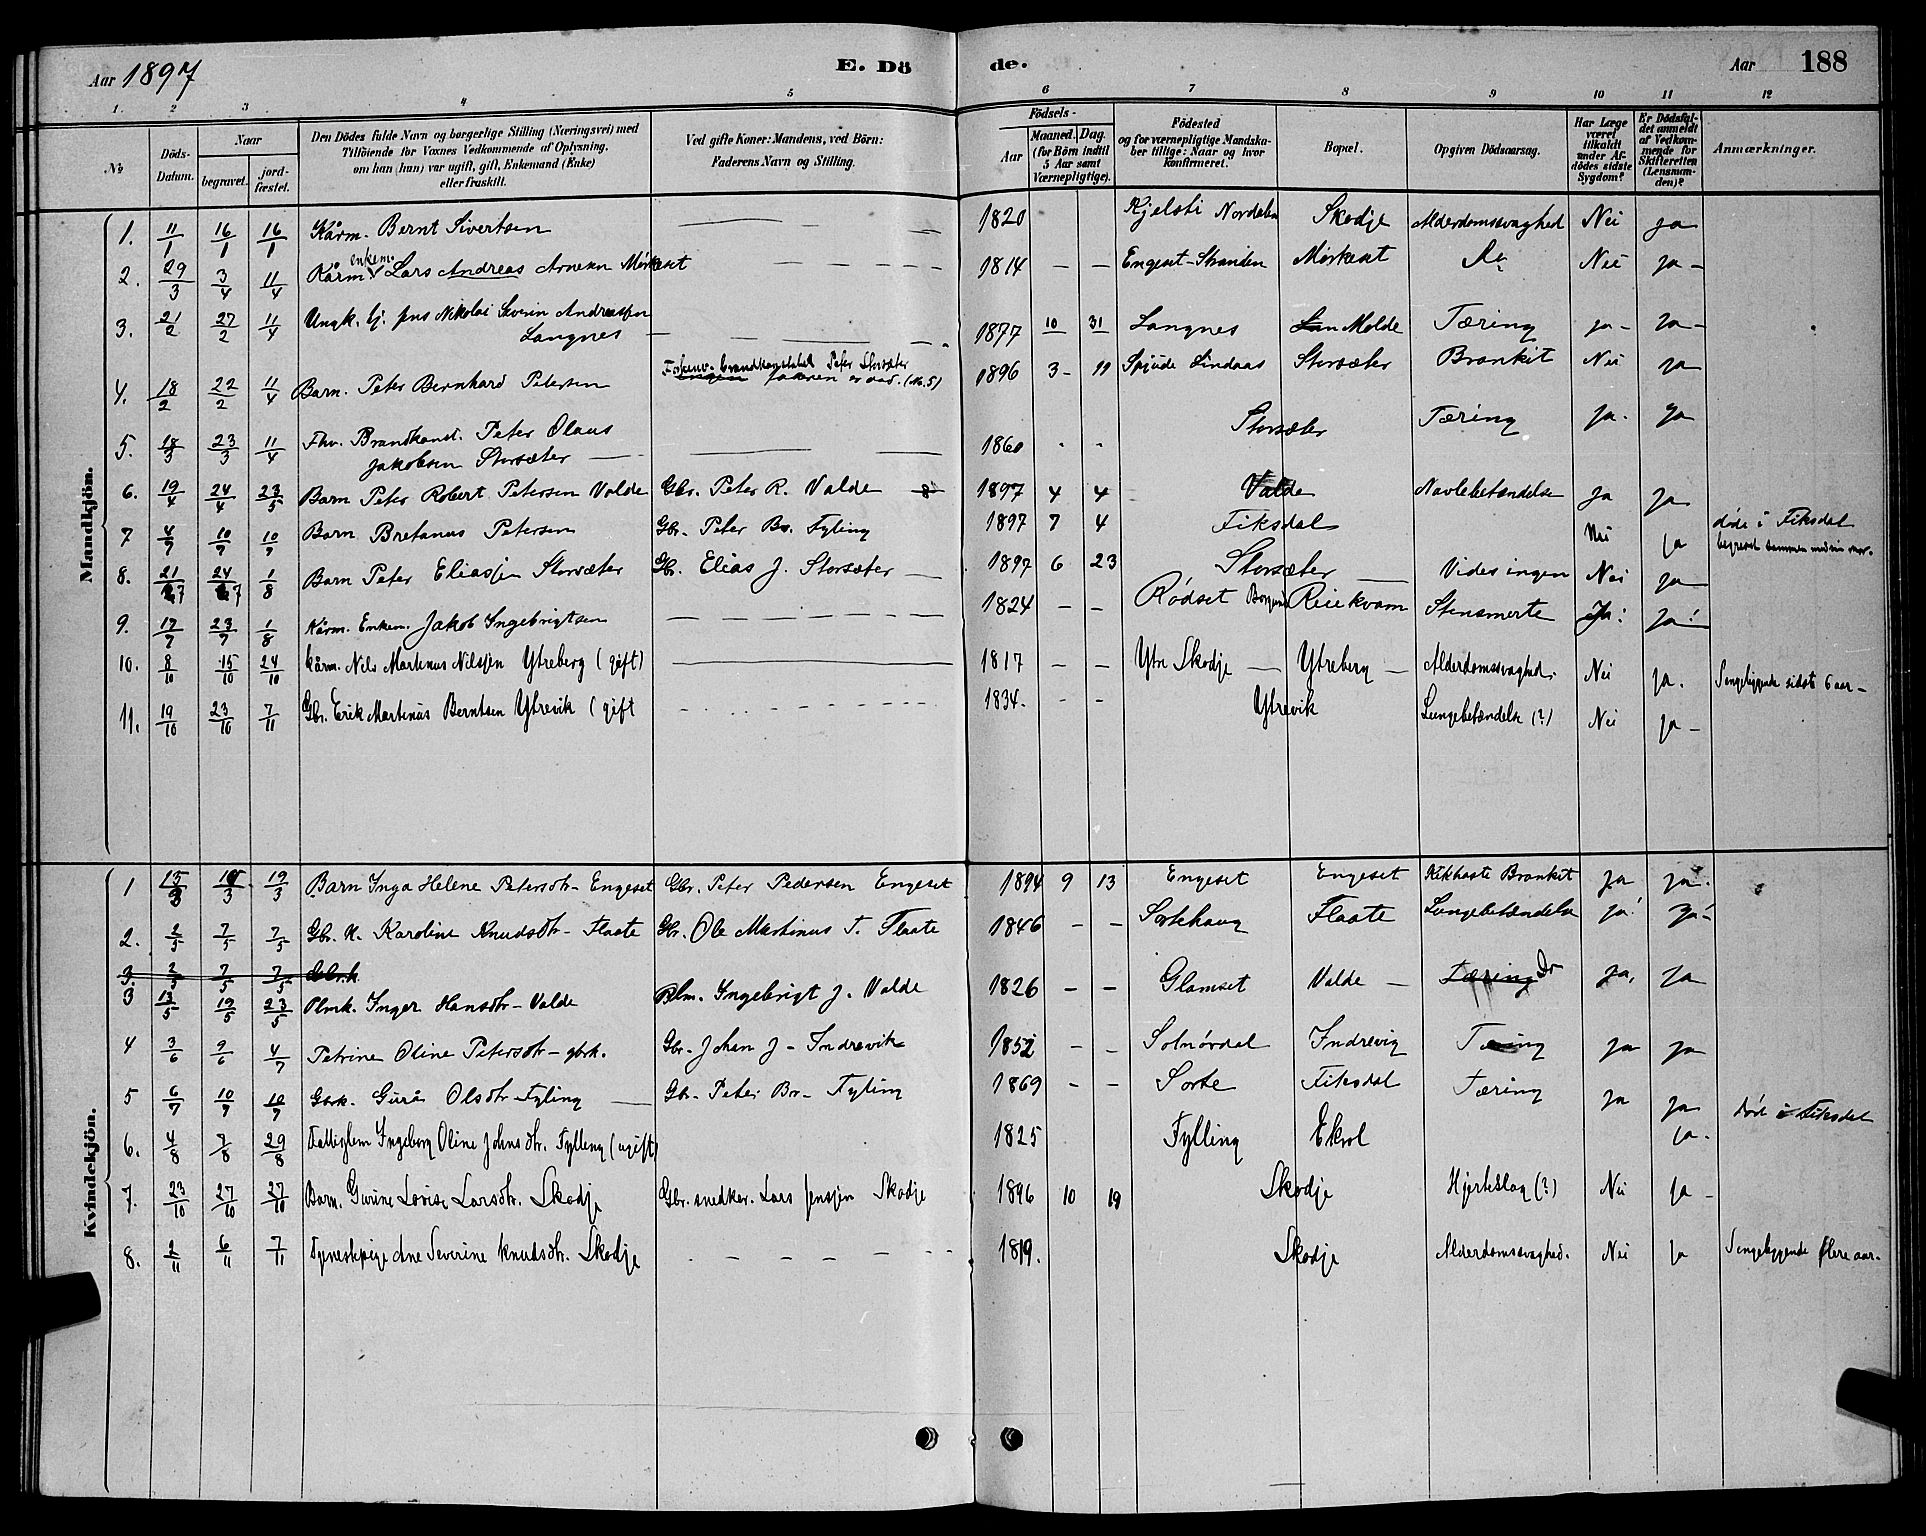 Aar 1897 E. Dö de. Aar 188
1. 2 3 4 5 6 7 8 9 10 11 12
No Döds-Datum. Naar begravet. jordfæstet. Den Dödes fulde Navn og borgerlige Stilling (Næringsvei) med Tilföiende for Voxnes Vedkommende af Oplysning, om han (hun) var ugift, gift, Enkemand (Enke) eller fraskilt. Ved gifte Koner: Mandens, ved Börn: Faderens Navn og Stilling. Födsels- Aar Maaned. Dag. (for Börn indtil 5 Aar samt Værnepligtige). Födested og for værnepligtige Mandskaber tillige: Naar og hvor konfirmeret. Bopæl. Opgiven Dödsaarsag. Har Læge været tilkaldt under Afdödes sidste Sygdom? Er Dödsfaldet anmeldt af Vedkommende for Skifteretten (Lensmanden)? Anmærkninger.
Mandkjön.
1. 11/1 16/1 16/1 Kårm. Bernt Sivertsen 1820 Kjelsti Nordalen Skodje Alderdomssvaghed Nei ja
2. 29/3 3/4 11/4 Kårm. enkem. Lars Andreas Arnesen Mørkeset 1814 – – Engeset-Stranden Mørkeset Do Nei ja –
3. 21/2 27/2 11/4 Ungk. Jens Nikolai Severin Andreassen Langnes 1877 10 31 Langnes Molde Tæring ja – ja –
4. 18/2 22/2 11/4 Barn. Peter Bernhard Petersen brandkonstabel Peter Storsæter (No. 5) 1896 3 – 19 Lindaas Storsæter Bronkit Nei ja
5. 18/3 23/3 11/4 Fhv. Brandkonst. Peter Olaus Jakobsen Storsæter 1860 - - Storsæter Tæring ja. ja
6. 19/4 24/4 23/5 Barn Peter Robert Petersen Valde Gbr. Peter R. Valde 1897 4 4 Valde Navlebetændelse ja ja
7 4/7 10/7 10/7 Barn Bretanus Petersen Gbr. Peter Br. Fyling 1897 7 4 Fiksdal Nei ja døde i Fiksdal begravet sammen med sin mor.
8. 21/7 24/7 1/8 Barn Peter Eliassen Storsæter Gbr. Elias J. Storsæter 1897 6 23 Storsæter Vides ingen Nei ja
9. 17/7 23/7 1/8 Kårm. Enkem. Jakob Ingebrigtsen 1824 – – Rødset Borgund Reiekvam Stensmerte Ja. ja!
10. 8/10 15/10 24/10 kårm. Nils Martinus Nilssen Ytreberg (gift) 1817 – – Ytre Skodje Ytreberg Alderdomssvaghed. Nei ja. Sengeliggende sidste 6 aar –
11. 19/10 23/10 7/11 Gbr. Erik Martinus Berntsen Ytrevik (gift 1834. - - Ytrevik Lungebetændelse (?) Nei ja –
Kvindekjön.
1 15/3 19/3 19/3 Barn Inga Helene Petersdtr – Engeset Gbr. Peter Pedersen Engeset 1894 9 13 Engeset Engeset Kikhoste Bronkit ja ja.
2. 2/5 7/5 7/5 Gbr. K. Karoline Knudsdtr – Flaate Gbr. Ole Martinus T. Flaate 1846 – – Sortehaug Flaate Lungebetændelse ja! ja –
3. 2/5 7/5 7/5 Gbrk
3 13/5 19/5 23/5 Plmk. Inger Hansdtr – Valde Plm. Ingebrigt J. Valde 1826 – – Glamset Valde – Tæring Do ja, ja
4 3/6 9/6 4/7 Petrine Oline Petersdtr – gbrk. Gbr. Johan J – Indrevik 1852 – – Solnørdal Indrevig Tæring ja ja
5 6/7 10/7 10/7 Gbrk. Guri Olsdtr Fyling Gbr. Peter Br. Fyling 1869 – – Sorte Fiksdal Tæring ja ja død i Fiksdal
6. 4/8 7/8 29/8 Fattiglem Ingeborg Oline Johnsdtr. Fylling (ugift) 1825 Fylling Ekrol ja.
7. 23/10 27/10 27/10 Barn. Gurine Lovise Larsdtr. Skodje Gbr. snedker. Lars Jenssen Skodje 1896 10 19 Skodje Hjerteslag (?) Nei ja –
8. 2/11 6/11 7/11 Tjenestepige Ane Severine Knudsdtr. Skodje 1819. Skodje Alderdomssvaghed. Nei ja Sengeliggende flere aar.